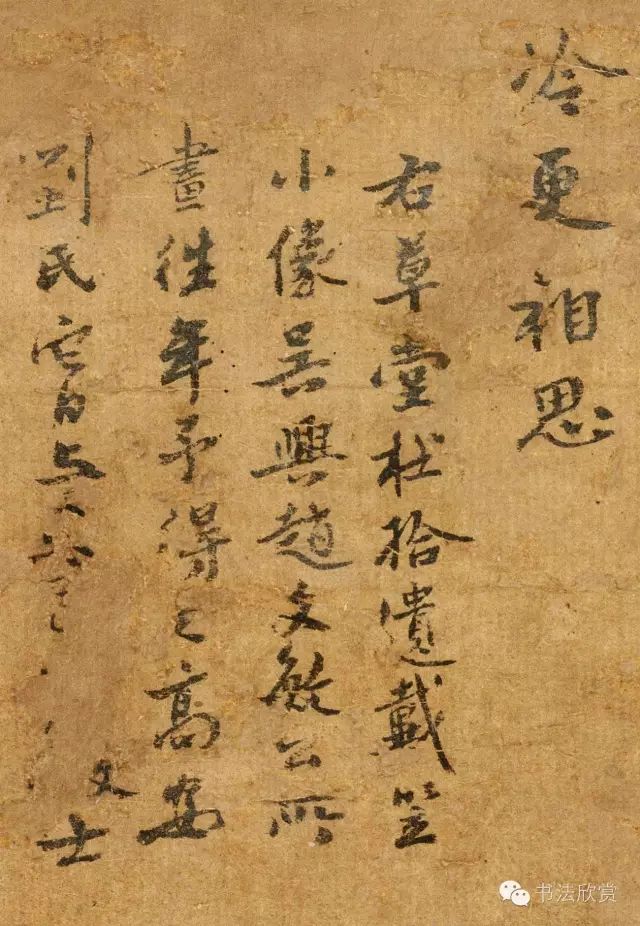 冷更相思
右草堂杜拾遺戴笠
小像吳興趙文敏公所
畫往年予得之高安
劉氏它日與
文士
书法欣赏